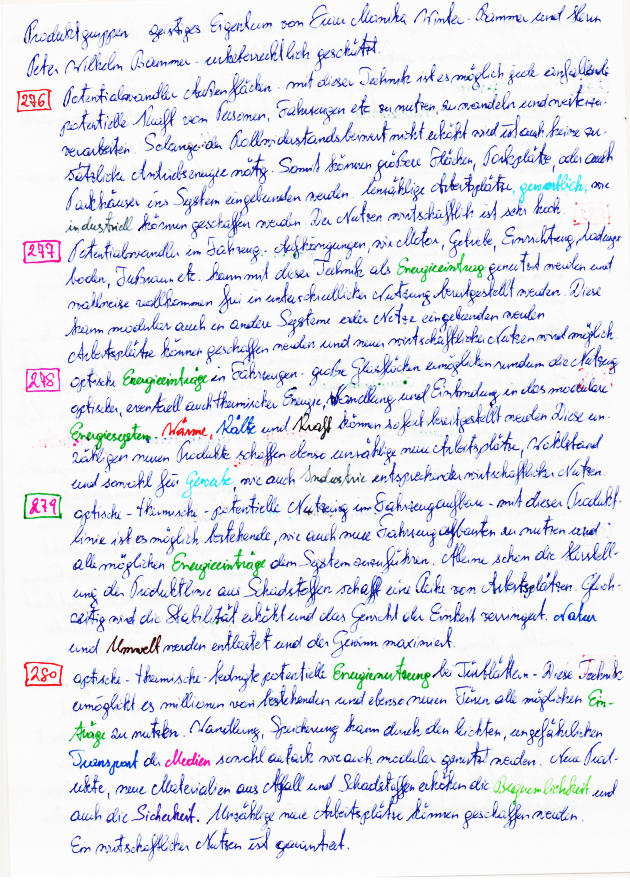 Produktgruppen geistiges Eigentum von Frau Monika Winter-Bammer und Herrn
Peter Wilhelm Bammer - urheberrechtlich geschützt.
276 Potentialwandler Außenflächen - mit dieser Technik ist es möglich jede einfallende
potentielle Kraft von Personen, Fahrzeugen etc. zu nutzen, zu wandeln und weiter zu
verarbeiten. Solange der Rollwiderstandsbeiwert nicht erhöht wird ist auch keine zu-
sätzliche Antriebsenergie nötig. Somit können größere Flächen, Parkplätze, oder auch
Parkhäuser ins System eingebunden werden. Unzählige Arbeitsplätze, gewerblich, wie
industriell können geschaffen werden. Der Nutzen wirtschaftlich ist sehr hoch.
277 Potentialwandler im Fahrzeug - Aufhängungen, wie Motor, Getriebe, Einrichtung, Lade
boden, Fußraum etc. kann mit dieser Technik als Energieeintrag genutzt werden und
wahlweise vollkommen frei in unterschiedlicher Nutzung bereitgestellt werden. Diese
kann modular auch in andere Systeme oder Netze eingebunden werden
Arbeitsplätze können geschaffen werden und neuer wirtschaftlicher Nutzen wird möglich
278 optische Energieeinträge in Fahrzeugen - große Glasflächen ermöglichen rundum die Nutzung
optischer, eventuell auch thermischer Energie, Wandlung und Einbindung in das modulare
Energiesystem. Wärme, Kälte und Kraft können sofort bereitgestellt werden. Diese un-
zähligen neuen Produkte schaffen ebenso unzählige neue Arbeitsplätze, Wohlstand
und sowohl für Gewerbe, wie auch Industrie entsprechender wirtschaftlicher Nutzen.
279 optische - thermische - potentielle Nutzung im Fahrzeugaufbau - mit dieser Produkt-
linie ist es möglich bestehende, wie auch neue Fahrzeugaufbauten zu nutzen und
alle möglichen Energieeinträge dem System zuzuführen. Alleine schon die Herstell-
ung der Produktlinie aus Schadstoffen schafft eine Reihe von Arbeitsplätzen. Gleich-
zeitig wird die Stabilität erhöht und das Gewicht der Einheit verringert. Natur
und Umwelt werden entlastet und der Gewinn maximiert.
280 optische - thermische - bedingte potentielle Energienutzung bei Türblättern - Diese Technik
ermöglicht es millionen von bestehenden und ebenso neuen Türen alle möglichen Ein-
träge zu nutzen. Wandlung, Speicherung kann durch den leichten, ungefährlichen
Transport der Medien sowohl autark wie auch modular genutzt werden. Neue Prod-
ukte, neue Materialien aus Abfall und Schadstoffen erhöhen die Bequemlichkeit und
auch die Sicherheit. Unzählige neue Arbeitsplätze können geschaffen werden.
Ein wirtschaftlicher Nutzen ist garantiert.